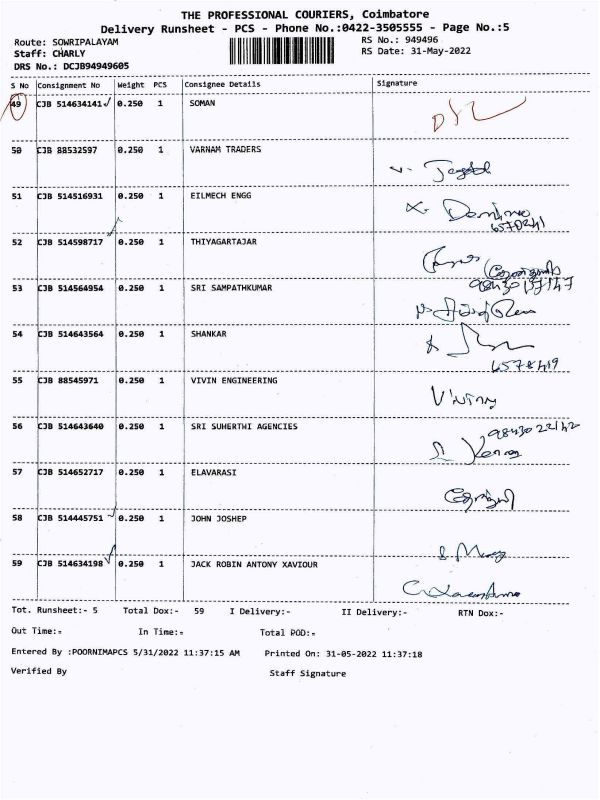 THE PROFESSIONAL COURIERS, Coimbatore
Delivery Runsheet - PCS - Phone No.:0422-3505555 - Page No.:5
Route: SOWRIPALAYAM RS No.: 949496
Staff: CHARLY RS Date: 31-May-2022
DRS No.: DCJB94949605
S No Consignment No Weight PCS Consignee Details Signature
49 CJB 514634141 0.250 1 SOMAN
50 CJB 88532597 0.250 1 VARNAM TRADERS
51 CJB 514516931 0.250 1 EILMECH ENGG
52 CJB 514598717 0.250 1 THIYAGARTAJAR
53 CJB 514564954 0.250 1 SRI SAMPATHKUMAR
54 CJB 514643564 0.250 1 SHANKAR
6578419
55 CJB 88545971 0.250 1 VIVIN ENGINEERING
56 CJB 514643640 0.250 1 SRI SUHERTHI AGENCIES
57 CJB 514652717 0.250 1 ELAVARASI
58 CJB 514445751 0.250 1 JOHN JOSHEP
59 CJB 514634198 0.250 1 JACK ROBIN ANTONY XAVIOUR
Tot. Runsheet:- 5 Total Dox:- 59 I Delivery:- II Delivery:- RTN Dox:-
Out Time:= In Time:= Total POD:=
Entered By :POORNIMAPCS 5/31/2022 11:37:15 AM Printed On: 31-05-2022 11:37:18
Verified By Staff Signature